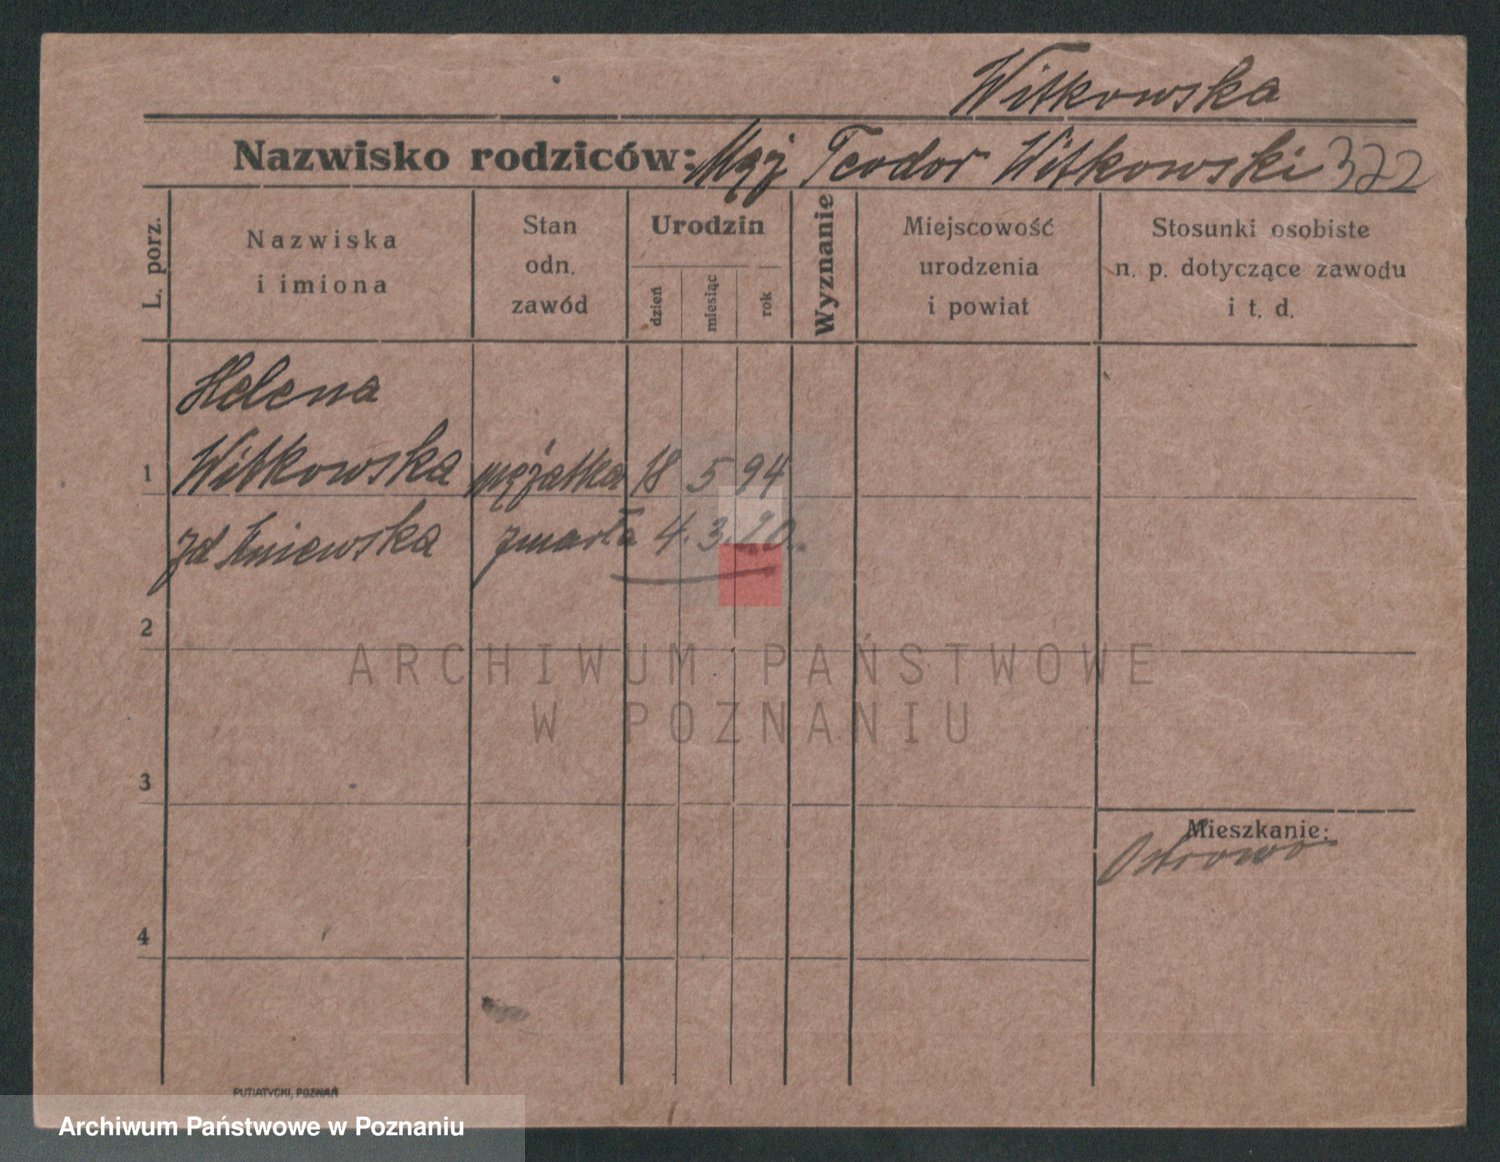 Witkowska
Nazwisko rodziców: Mąż Teodor Witkowski 322
L. porz.
Nazwiska
i imiona
Stan
odn.
zawód
Urodzin
dzień
miesiąc
rok
Wyznanie
Miejscowość
urodzenia
i powiat
Stosunki osobiste
n. p. dotyczące zawodu
i t. d.
Helena
1 Witkowska mężatka 18 5 94
zd Kniewska zmarła 4. 3. 20.
2
ARCHIWUM PAŃSTWOWE
W POZNANIU
3
Mieszkanie:
Ostrowo
4
PUTIATYCKI, POZNAŃ
Archiwum Państwowe w Poznaniu